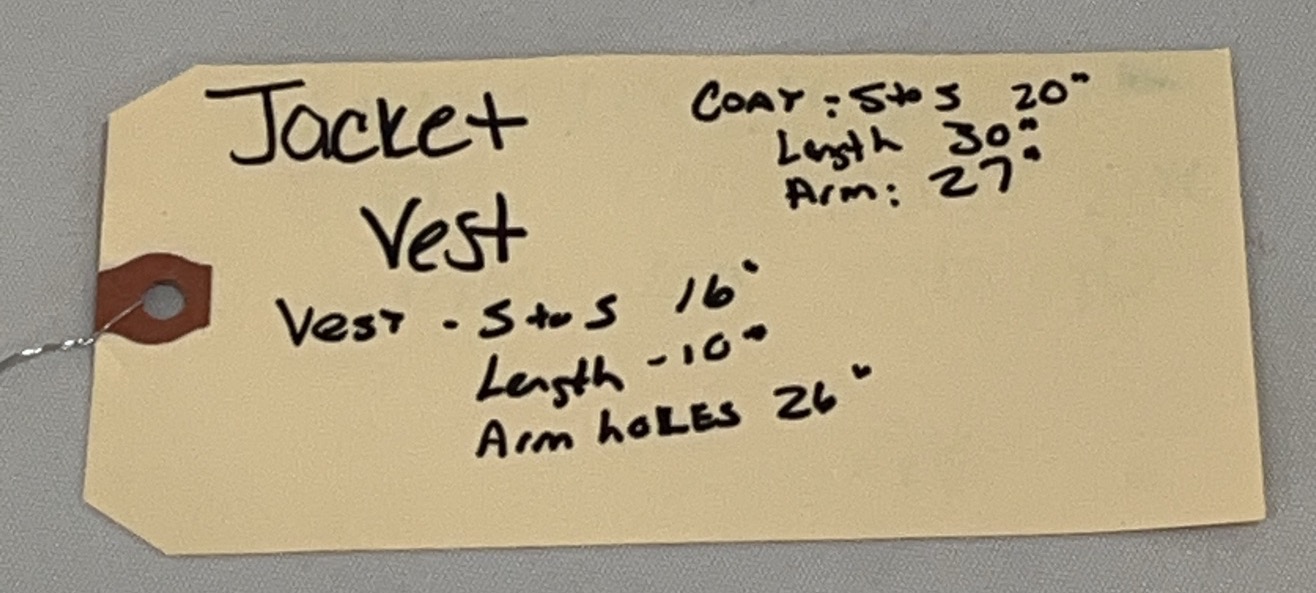 Jacket
Vest
COAT : S to S 20"
Length 30"
Arm: 27"
Vest - S to S 16"
Length - 10"
Arm hoLES 26"